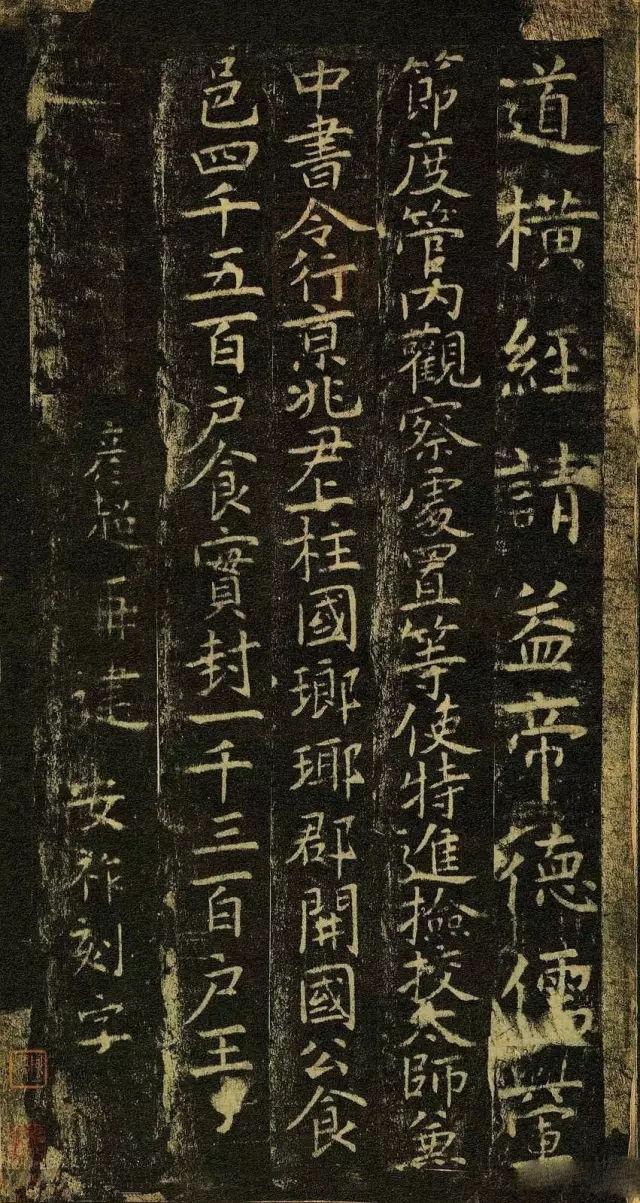 道橫經請益帝德儒
節度管內觀察處置等使特進撿挍太師兼
中書令行京兆尹上柱國瑯琊郡開國公食
邑四千五百戶食實封一千三百戶王
彥超再建 安祚刻字